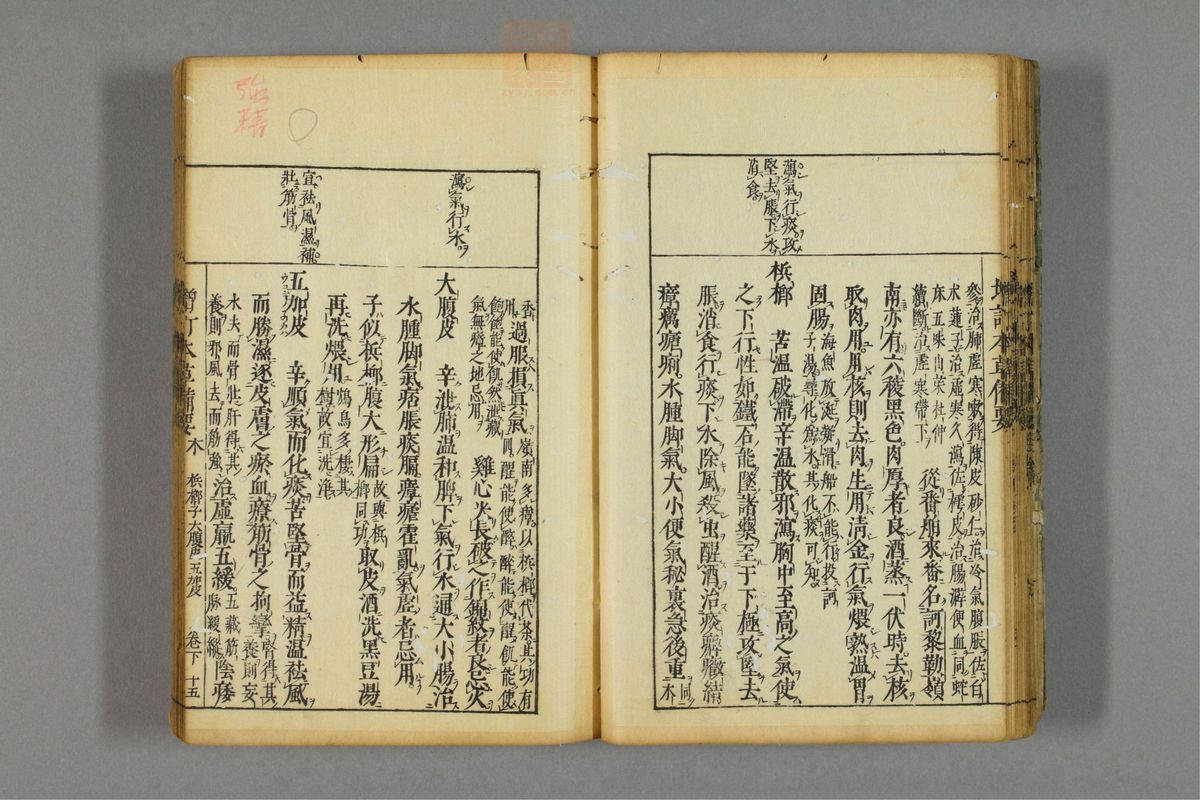 瀉氣行痰攻
堅去脹下水
消食
參治肺虛寒嗽得陳皮砂仁治冷氣腹脹佐白
朮蓮子治虛寒久瀉佐樗皮治腸澼便血同蛇
床五味山茱杜仲
續斷治虛寒帶下
從番舶來番名訶黎勒嶺
南亦有六稜黑色肉厚者良酒蒸一伏時去核
取肉用用核則去肉生用清金行氣煨熟温胃
固腸
海魚放涎凝滑船不能行投訶
子湯尋化為水其化痰可知
檳榔 苦温破滯辛温散邪瀉胸中至高之氣使
之下行性如鐵石能墜諸藥至于下極攻堅去
脹消食行痰下水除風殺虫醒酒治痰癖癥結
瘴癘瘧痢水腫脚氣大小便氣秘裏急後重
同木
香
用
過服損眞氣
嶺南多瘴以檳榔代茶其功有
四醒能使醉醉能使醒飢能使
飽飽能使飢然瀉臟
氣無瘴之地忌用
雞心尖長破之作錦紋者良忌火
瀉氣行水
大腹皮 辛泄肺温和脾下氣行水通大小腸治
水腫脚氣痞脹痰膈瘴瘧霍亂氣虛者忌用
子似檳榔腹大形扁
故與檳
榔同功
取皮酒洗黑豆湯
再洗煨用
鴆鳥多棲其
樹故宜洗淨
宣祛風濕補
壯筋骨
五加皮 辛順氣而化痰苦堅骨而益精温祛風
而勝濕逐皮膚之瘀血療筋骨之拘攣
腎得其
養則妄
水去而骨壯肝得其
養則邪風去而筋強
治虛羸五緩
五藏筋
脉緩縱
陰痿
增訂本草備要 木 檳榔子大腹皮五加皮 卷下 十五
強精